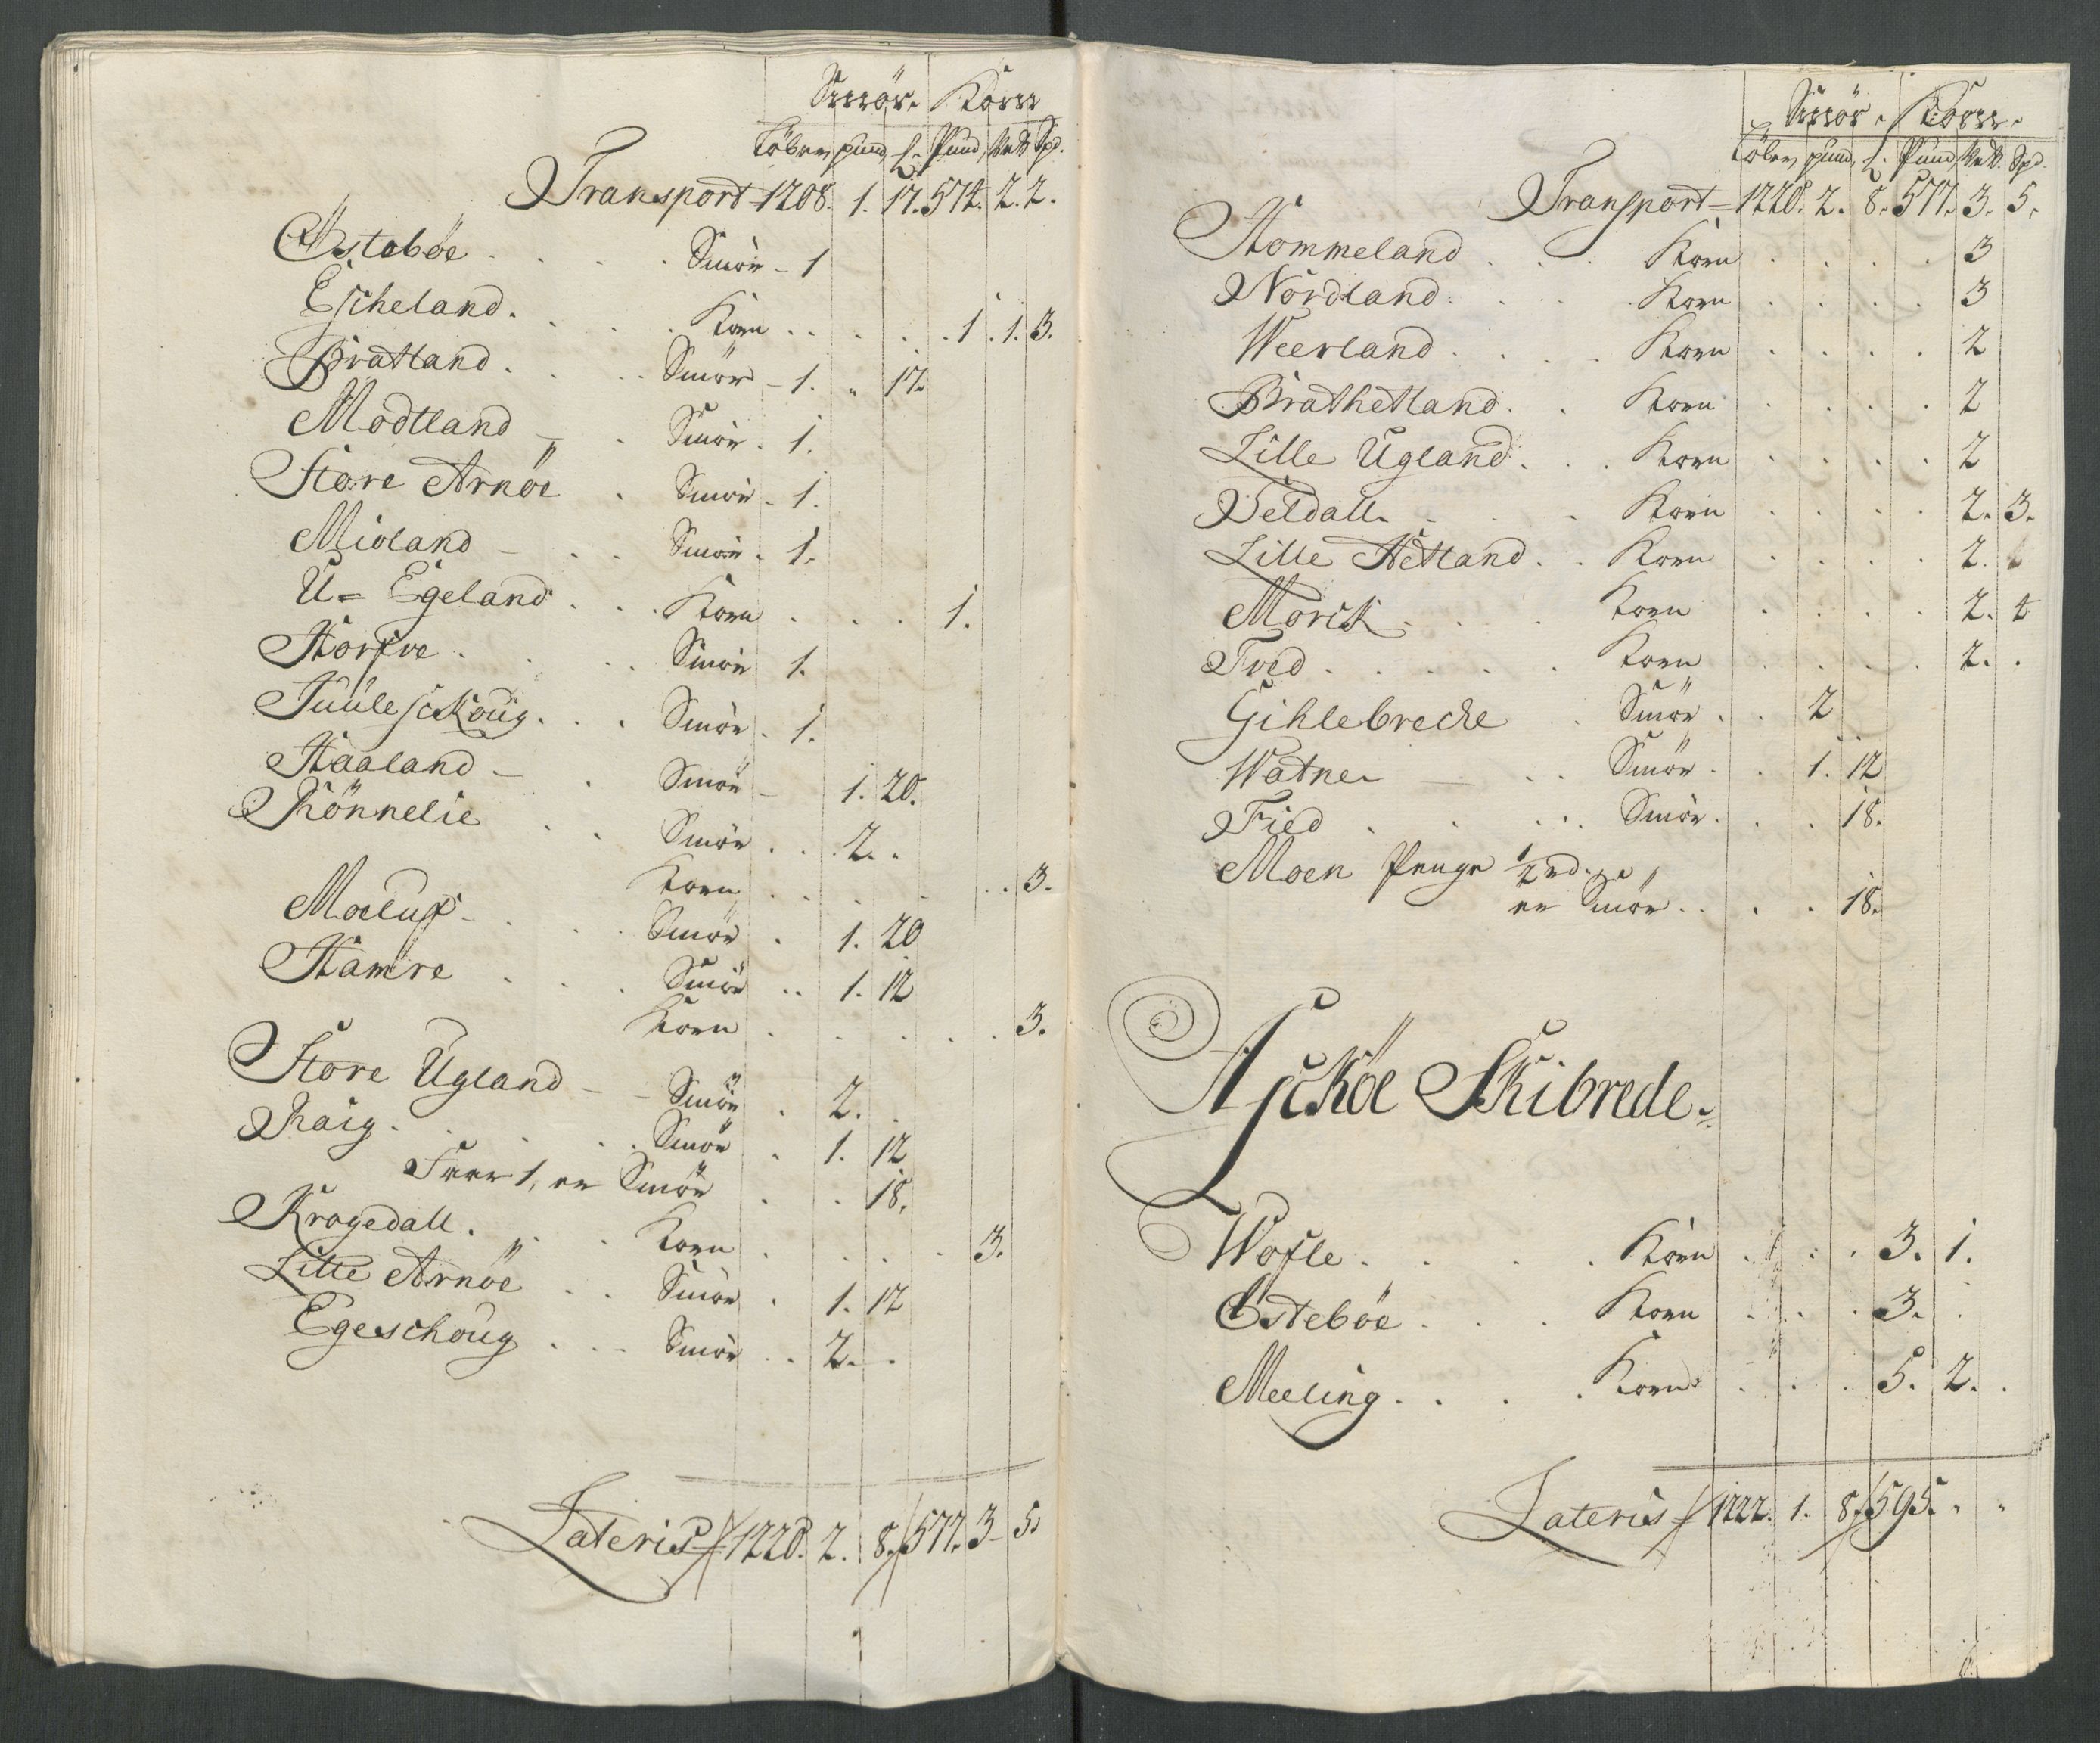 Smör. Korn
Löber, pund, f. Pund, Vett Spd.
Transport 1208. 1. 17. 574. 2. 2.
Östeböe . . . . Smör - 1
Escheland . . . Korn . . . . . 1. 1. 3.
Bratland . . . Smör - 1. " 17.
Modtland - . Smör . 1.
Store Arnöe . Smör - 1.
Mioland - . . Smör . 1.
U= Egeland . . . Korn . . . 1.
Horfve . . . Smör 1.
Juuleschoug . . . Smör . 1.
Haaland - . Smör - 1. 20.
Rönnelie . . Smör . . 2. .
Korn . . . . . . 3.
Moeluf . . . Smör . 1. 20
Hamre . . . Smör . . 1. 12
Korn . . . . . . 3.
Store Ugland - - Smör . 2. .
Raig . . . . . Smör . 1. 12
Faar 1, er Smör . . 18.
Kragedall . . . Korn . . . . 3.
Litte Arnöe . . Smör . 1. 12
Egeschoug . . . Smör . . 2. .
Lateris 1220. 2. 8. 577. 3 5
Smör. Korn.
Löber, pund, f. Pund Vett. Spd.
Transport = 1220. 2. 8. 577. 3. 5.
Hommeland . . . Korn . . . . 3
Nordland . . . Korn . . . . 3
Weerland . . . . Korn . . . . 2
Brathetland . . Korn . . . . 2
Lille Ugland . . . Korn . . . . 2
Deldall . . . Korn . . . . 2. 3.
Lille Hetland . . Korn . . . . 2.
Morck . . . Korn . . . . 2. 4
Tved . . . . . Korn . . . . 2. .
Gihlebrecke . Smör . . 2
Watne - - . . Smör . . 1. 12
Fied . . . . . Smör . . . 18.
Moen Penge 1/2 rd.
er Smör . . . . 18.
Aschöe Skibrede.
Wofle . . . . Korn . . . . 3. 1.
Östeböe . . . Korn . . . . 3. .
Meeling . . . . Korn . . . . 5. 2. .
Lateris 1222. 1. 8. 595. " "